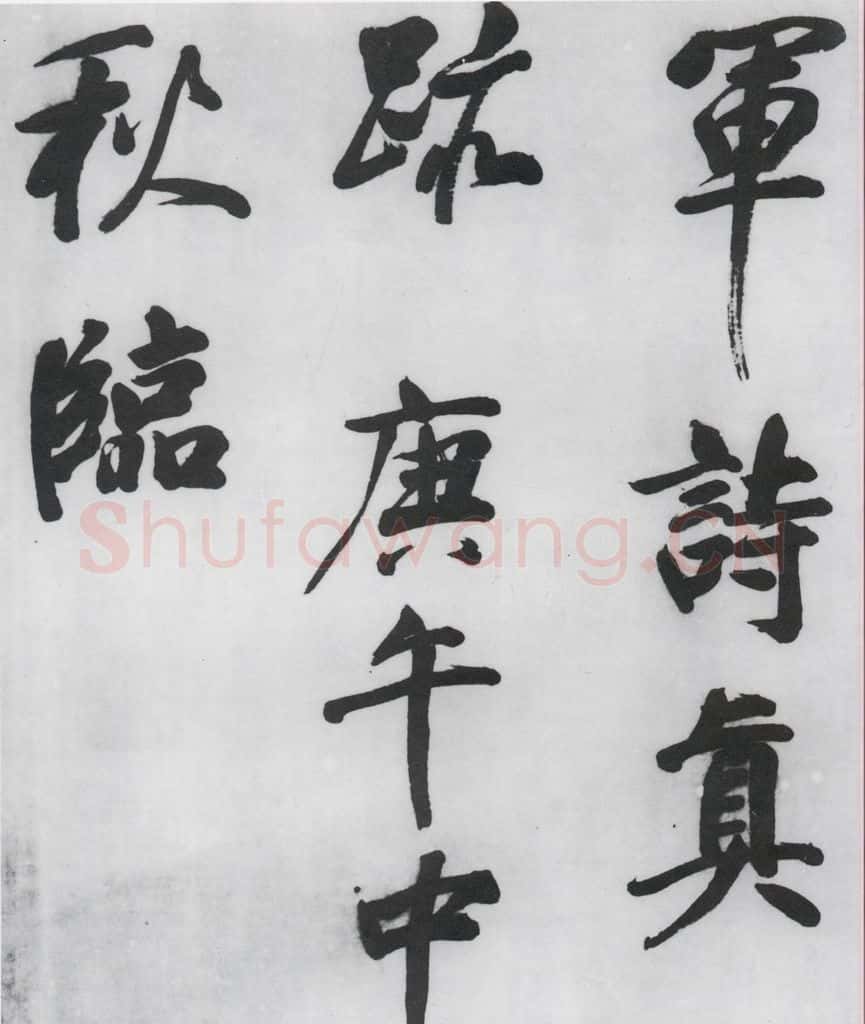 軍詩真
跡庚午中
秋臨
Shufawang.CN